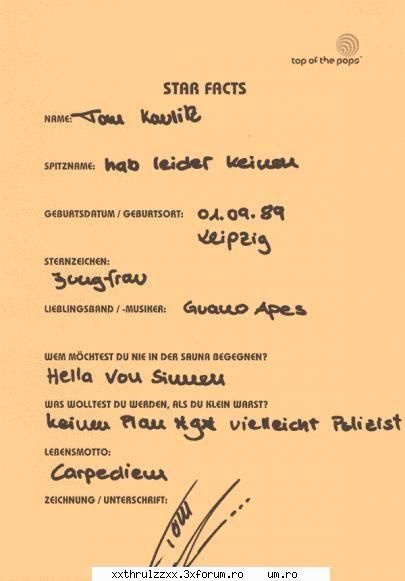 top of the pops
STAR FACTS
NAME: Tom Kaulitz
SPITZNAME: hab leider keinen
GEBURTSDATUM / GEBURTSORT: 01.09.89
Leipzig
STERNZEICHEN:
Jungfrau
LIEBLINGSBAND / -MUSIKER: Guano Apes
WEM MÖCHTEST DU NIE IN DER SAUNA BEGEGNEN?
Hella von Sinnen
WAS WOLLTEST DU WERDEN, ALS DU KLEIN WARST?
keinen Plan vielleicht Polizist
LEBENSMOTTO:
Carpediem
ZEICHNUNG / UNTERSCHRIFT:
Tom
xxthrulzzxx.3xforum.ro um.ro